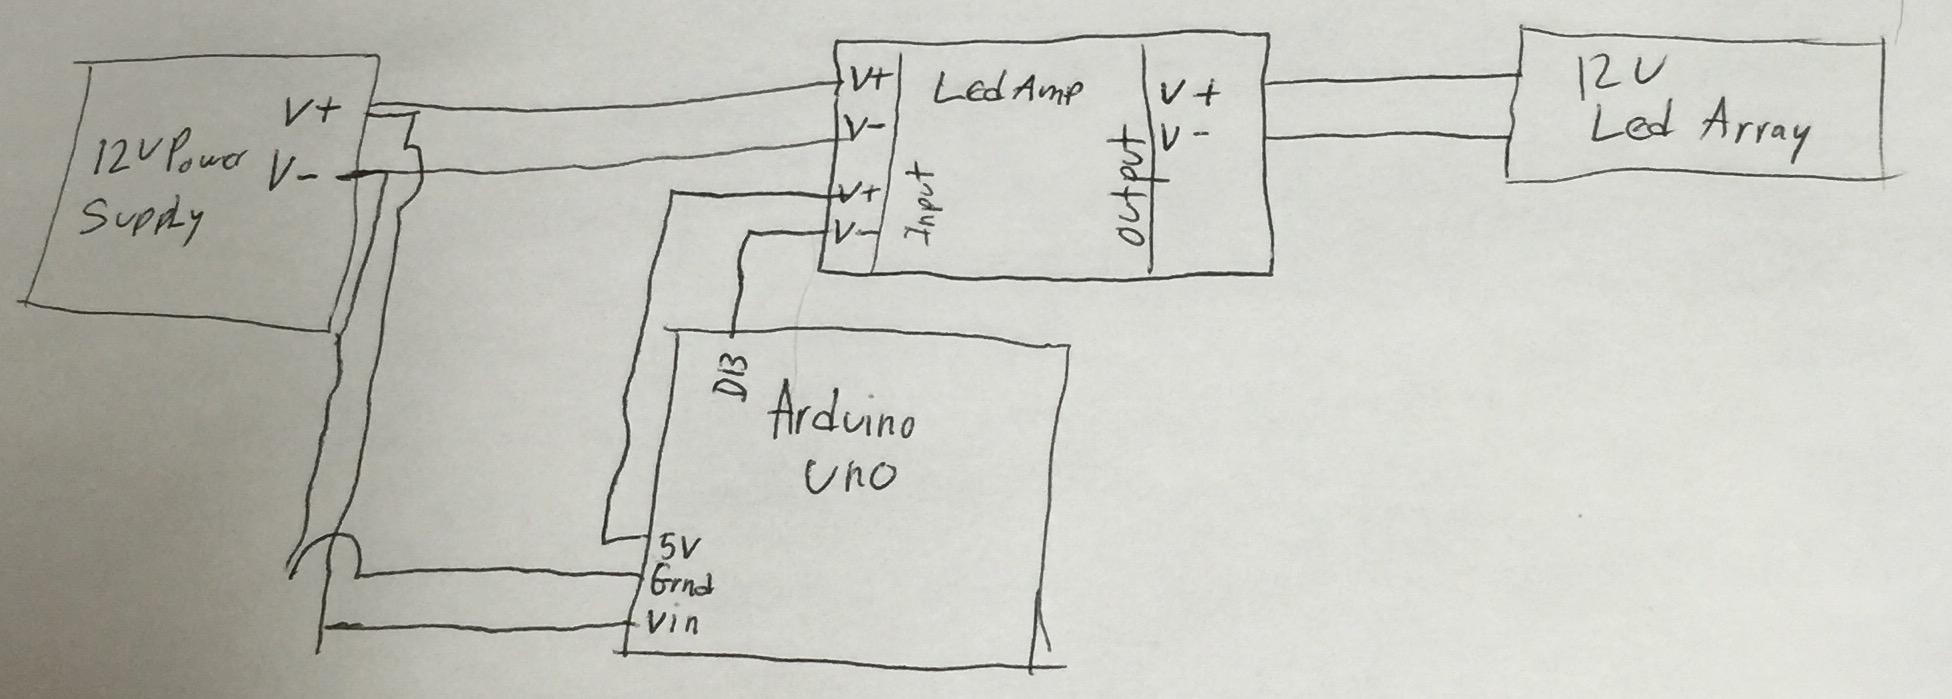 V+
12V Power
V-
Supply
V+
V-
V+
V-
Input
Led Amp
Output
V+
V-
12V
Led Array
D13
Arduino
Uno
5V
Grnd
Vin